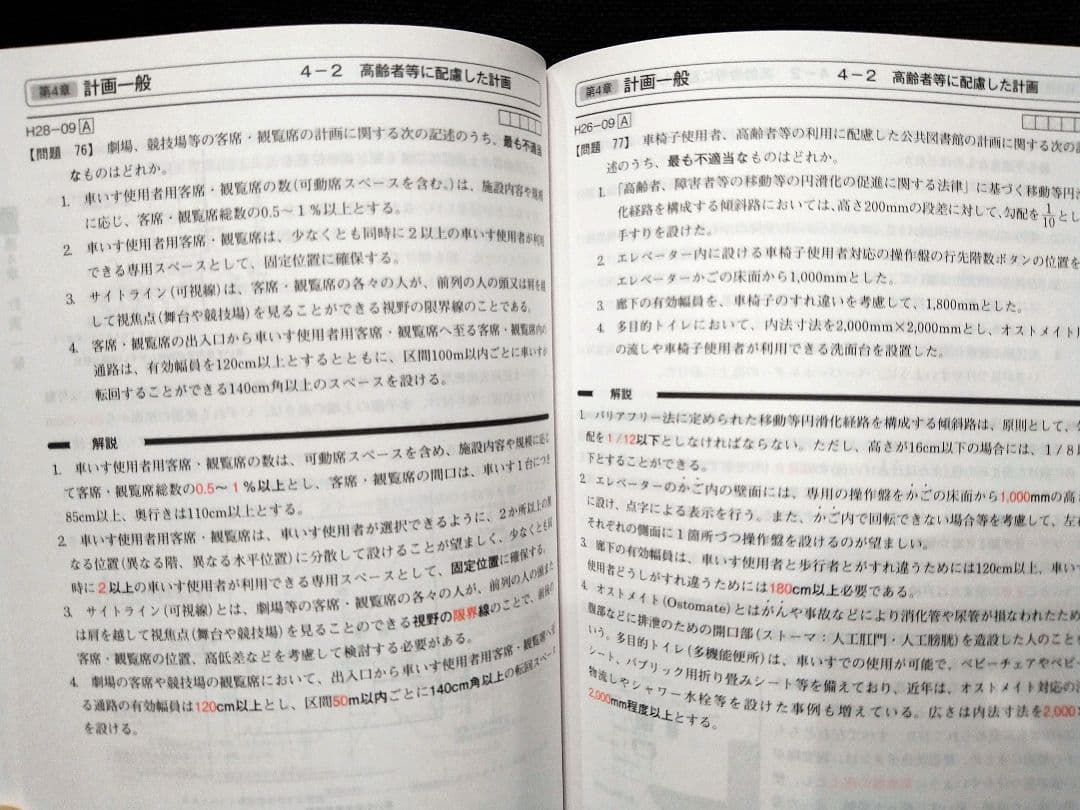 第4章 計画一般 4-2 高齢者等に配慮した計画
H28-09 A
【問題 76】 劇場、競技場等の客席・観覧席の計画に関する次の記述のうち、最も不適当
なものはどれか。
1. 車いす使用者用客席・観覧席の数(可動席スペースを含む。)は、施設内容や規模
に応じ、客席・観覧席総数の0.5～1％以上とする。
2. 車いす使用者用客席・観覧席は、少なくとも同時に2以上の車いす使用者が利用
できる専用スペースとして、固定位置に確保する。
3. サイトライン(可視線)は、客席・観覧席の各々の人が、前列の人の頭又は肩を越
して視焦点(舞台や競技場)を見ることができる視野の限界線のことである。
4. 客席・観覧席の出入口から車いす使用者用客席・観覧席へ至る客席・観覧席内の
通路は、有効幅員を120cm以上とするとともに、区間100m以内ごとに車いすが
転回することができる140cm角以上のスペースを設ける。
解説
1. 車いす使用者用客席・観覧席の数は、可動席スペースを含め、施設内容や規模に応じ
て客席・観覧席総数の0.5～1％以上とし、客席・観覧席の間口は、車いす1台につき
85cm以上、奥行きは110cm以上とする。
2. 車いす使用者用客席・観覧席は、車いす使用者が選択できるように、2か所以上の異
なる位置(異なる階、異なる水平位置)に分散して設けることが望ましく、少なくとも同
時に2以上の車いす使用者が利用できる専用スペースとして、固定位置に確保する。
3. サイトライン(可視線)とは、劇場等の客席・観覧席の各々の人が、前列の人の頭また
は肩を越して視焦点(舞台や競技場)を見ることのできる視野の限界線のことで、前後の
客席・観覧席の位置、高低差などを考慮して検討する必要がある。
4. 劇場の客席や競技場の観覧席において、出入口から車いす使用者用客席・観覧席へ至
る通路の有効幅員は120cm以上とし、区間50m以内ごとに140cm角以上の転回スペース
を設ける。
第4章 計画一般 4-2 高齢者等に配慮した計画
H26-09 A
【問題 77】 車椅子使用者、高齢者等の利用に配慮した公共図書館の計画に関する次の記
述のうち、最も不適当なものはどれか。
1. 「高齢者、障害者等の移動等の円滑化の促進に関する法律」に基づく移動等円滑
化経路を構成する傾斜路においては、高さ200mmの段差に対して、勾配を1/10とし
手すりを設けた。
2. エレベーター内に設ける車椅子使用者対応の操作盤の行先階数ボタンの位置を
エレベーターかごの床面から1,000mmとした。
3. 廊下の有効幅員を、車椅子のすれ違いを考慮して、1,800mmとした。
4. 多目的トイレにおいて、内法寸法を2,000mm×2,000mmとし、オストメイト
の流しや車椅子使用者が利用できる洗面台を設置した。
解説
1. バリアフリー法に定められた移動等円滑化経路を構成する傾斜路は、原則として、勾
配を1/12以下としなければならない。ただし、高さが16cm以下の場合には、1/8以
下とすることができる。
2. エレベーターのかご内の壁面には、専用の操作盤をかごの床面から1,000mmの高さ
に設け、点字による表示を行う。また、かご内で回転できない場合等を考慮して、左右
それぞれの側面に1箇所づつ操作盤を設けるのが望ましい。
3. 廊下の有効幅員は、車いす使用者と歩行者とがすれ違うためには120cm以上、車いす
使用者どうしがすれ違うためには180cm以上必要である。
4. オストメイト(Ostomate)とはがんや事故などにより消化管や尿管が損なわれたため
腹部などに排泄のための開口部(ストーマ：人工肛門・人工膀胱)を造設した人のことを
いう。多目的トイレ(多機能便所)は、車いすでの使用が可能で、ベビーチェアやベビー
シート、パブリック用折り畳みシート等を備えており、近年は、オストメイト対応の汚
物流しやシャワー水栓等を設けた事例も増えている。広さは内法寸法を2,000
2,000mm程度以上とする。